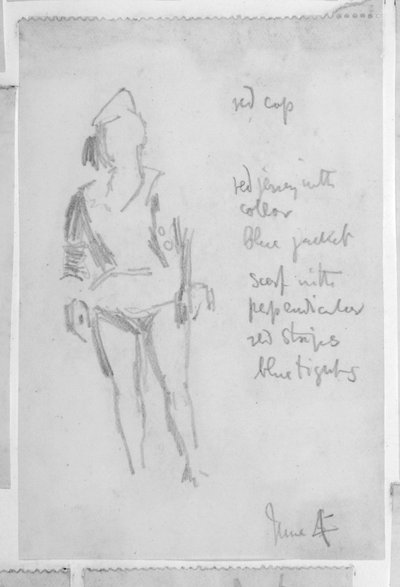 red cap
red jersey with
collar
blue jacket
scarf with
pependicular
red strips
blue tights
June